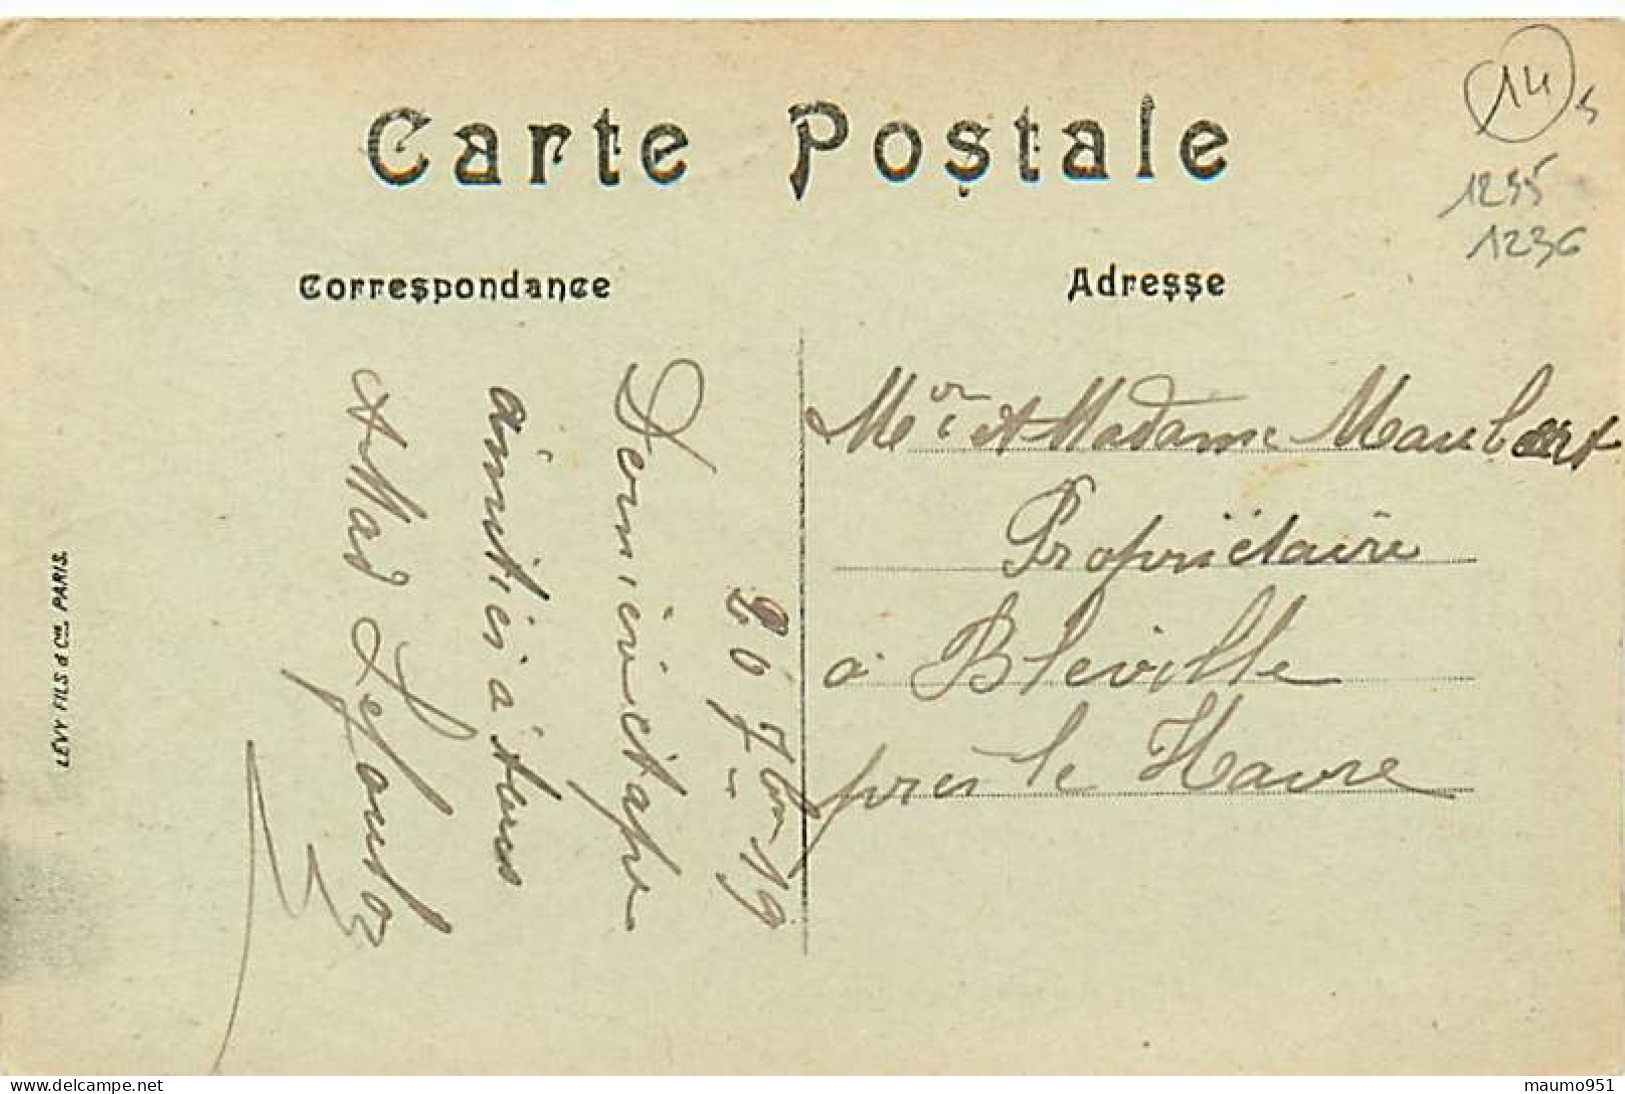 Carte Postale
14
1236
Correspondance
Adresse
20 7bre 19
Dernière étape
amitiés à tous
LÉVY FILS & Cie PARIS.
Mr et Madame Maubert
Propriétaire
à Bléville
près le Havre
www.delcampe.net
maumo951